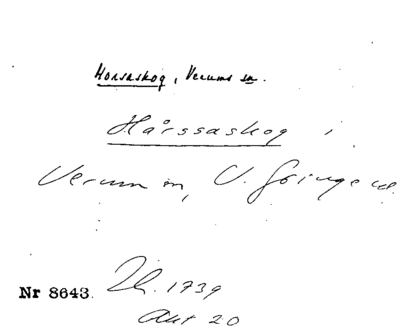 Horsaskog, Verums sn.
Hårssaskog i
Verum sn, V. Göinge hd.
Nr 8643. 1739
Akt 20